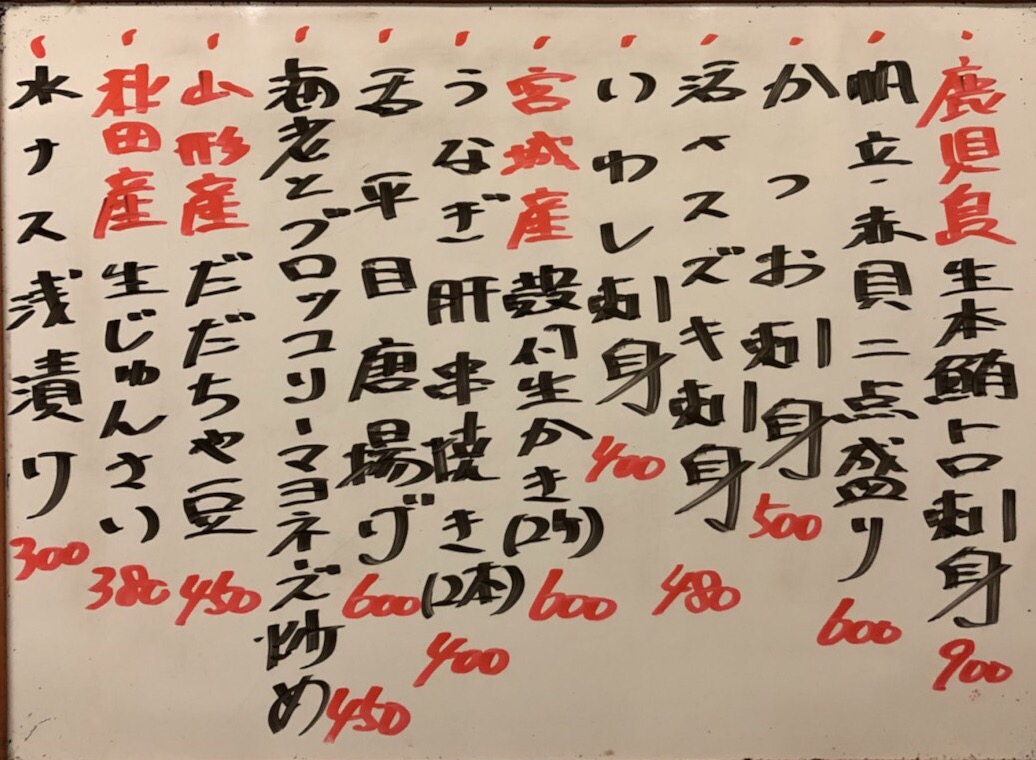 鹿児島生本鮪トロ刺身900
帆立・赤貝二点盛り600
かつお刺身500
活〆スズキ刺身480
いわし刺身400
宮城産殻付生かき(2ケ)600
うなぎ肝串焼き(2本)400
活平目唐揚げ600
海老とブロッコリーマヨネーズ炒め450
山形産だだちゃ豆450
秋田産生じゅんさい380
水ナス浅漬り300